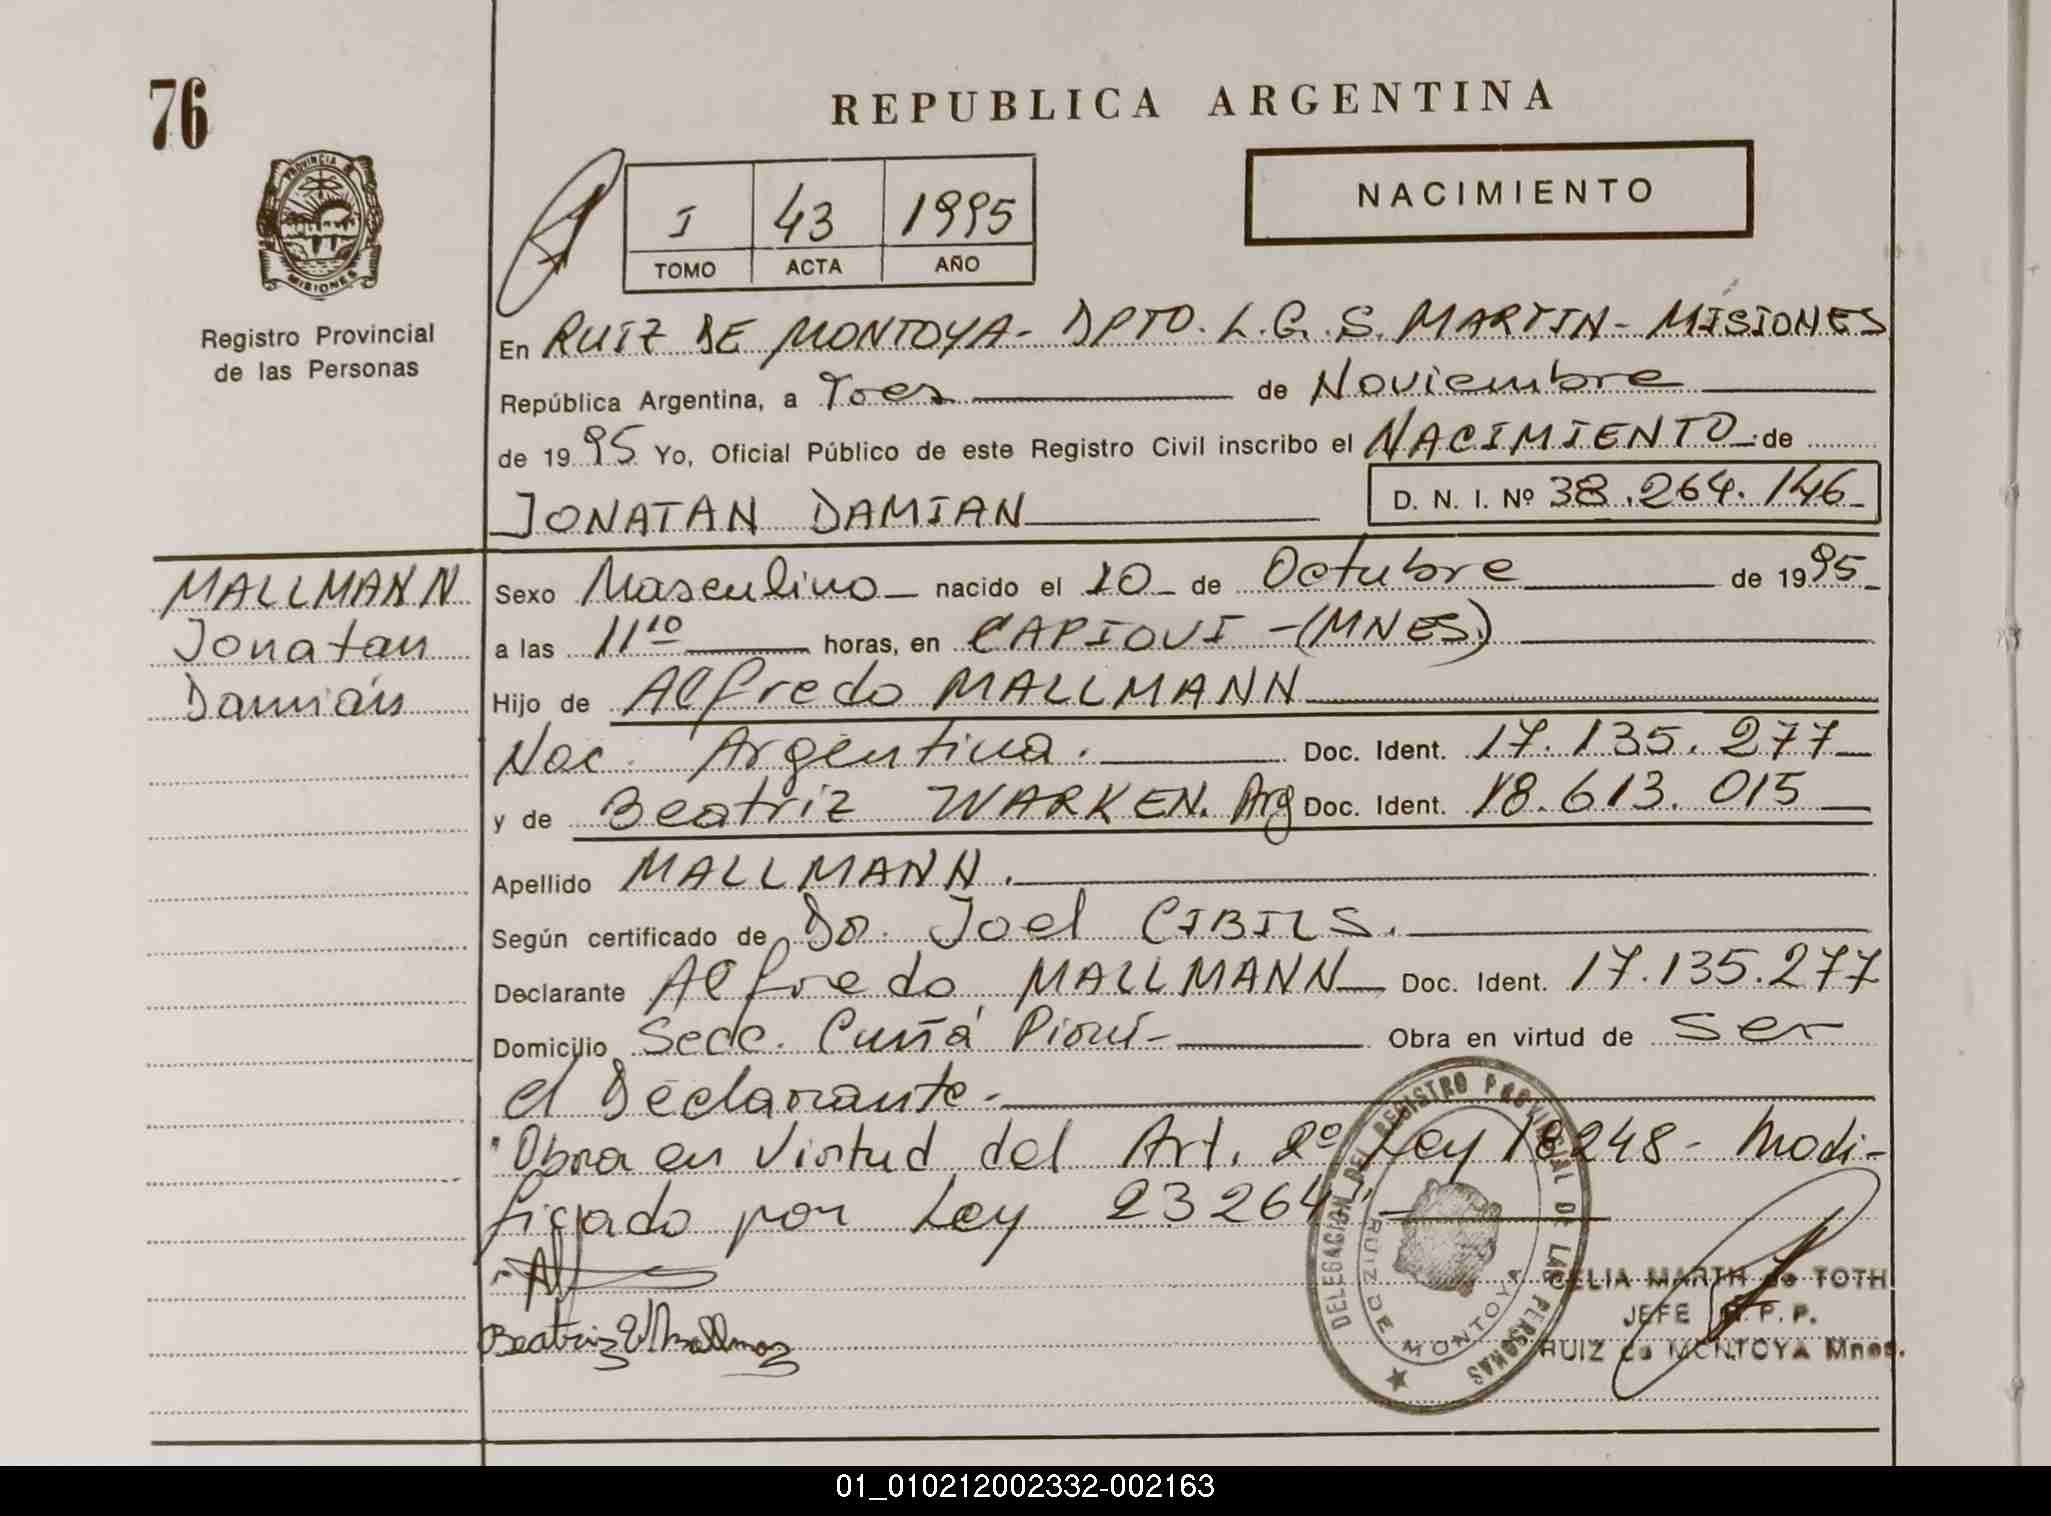 76
REPUBLICA ARGENTINA
PROVINCIA DE MISIONES
Registro Provincial
de las Personas
I 43 1995
TOMO ACTA AÑO
NACIMIENTO
En RUIZ DE MONTOYA - DPTO. L.G.S. MARTIN - MISIONES
República Argentina, a Tres de Noviembre
de 1995 Yo, Oficial Público de este Registro Civil inscribo el NACIMIENTO de
JONATAN DAMIAN D. N. I. Nº 38.264.146
MALLMANN
Jonatan
Damián
Sexo Masculino nacido el 10 de Octubre de 1995
a las 11 10 horas, en CAPIOVI - (MNES.)
Hijo de Alfredo MALLMANN
Nac. Argentina. Doc. Ident. 17.135.277
y de Beatriz WARKEN. Arg Doc. Ident. 18.613.015
Apellido MALLMANN.
Según certificado de Dr. Joel CIBILS.
Declarante Alfredo MALLMANN Doc. Ident. 17.135.277
Domicilio Secc. Cuñá Pirú - Obra en virtud de ser
el Declarante.
"Obra en virtud del Art. 2º Ley 18248 - Modi-
ficado por Ley 23264"
DELEGACION DEL REGISTRO PROVINCIAL DE LAS PERSONAS
RUIZ DE MONTOYA
CELIA MARTH de TOTH
JEFE R.P.P.
RUIZ de MONTOYA Mnes.
01_010212002332-002163